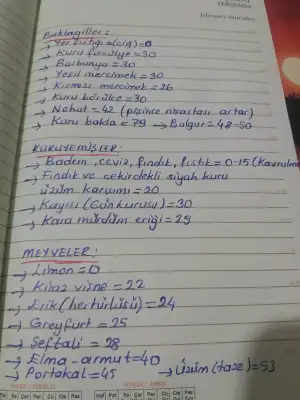 PERŞEMBE
february-thursday
Baklagiller:
→ Yer fıstığı=(çiğ)=0
→ Kuru fasulye=30
→ Barbunya=30
→ Yeşil mercimek=30
→ Kırmızı mercimek=26
→ Kuru börülce=30
→ Nohut=42 (pişince nişastası artar)
→ Kuru bakla=79 → Bulgur=48-50
KURUYEMİŞLER:
→ Badem, ceviz, fındık, fıstık=0-15(Kavrulma
→ Fındık ve çekirdekli siyah kuru
üzüm karışımı=20
→ Kayısı (Gün kurusu)=30
→ Kara mürdüm eriği=29
MEYVELER:
→ Limon=0
→ Kiraz vişne=22
→ Erik(her türlüsü)=24
→ Greyfurt=25
→ Şeftali=28
→ Elma-armut=40
→ Portakal=45 → Üzüm(taze)=53